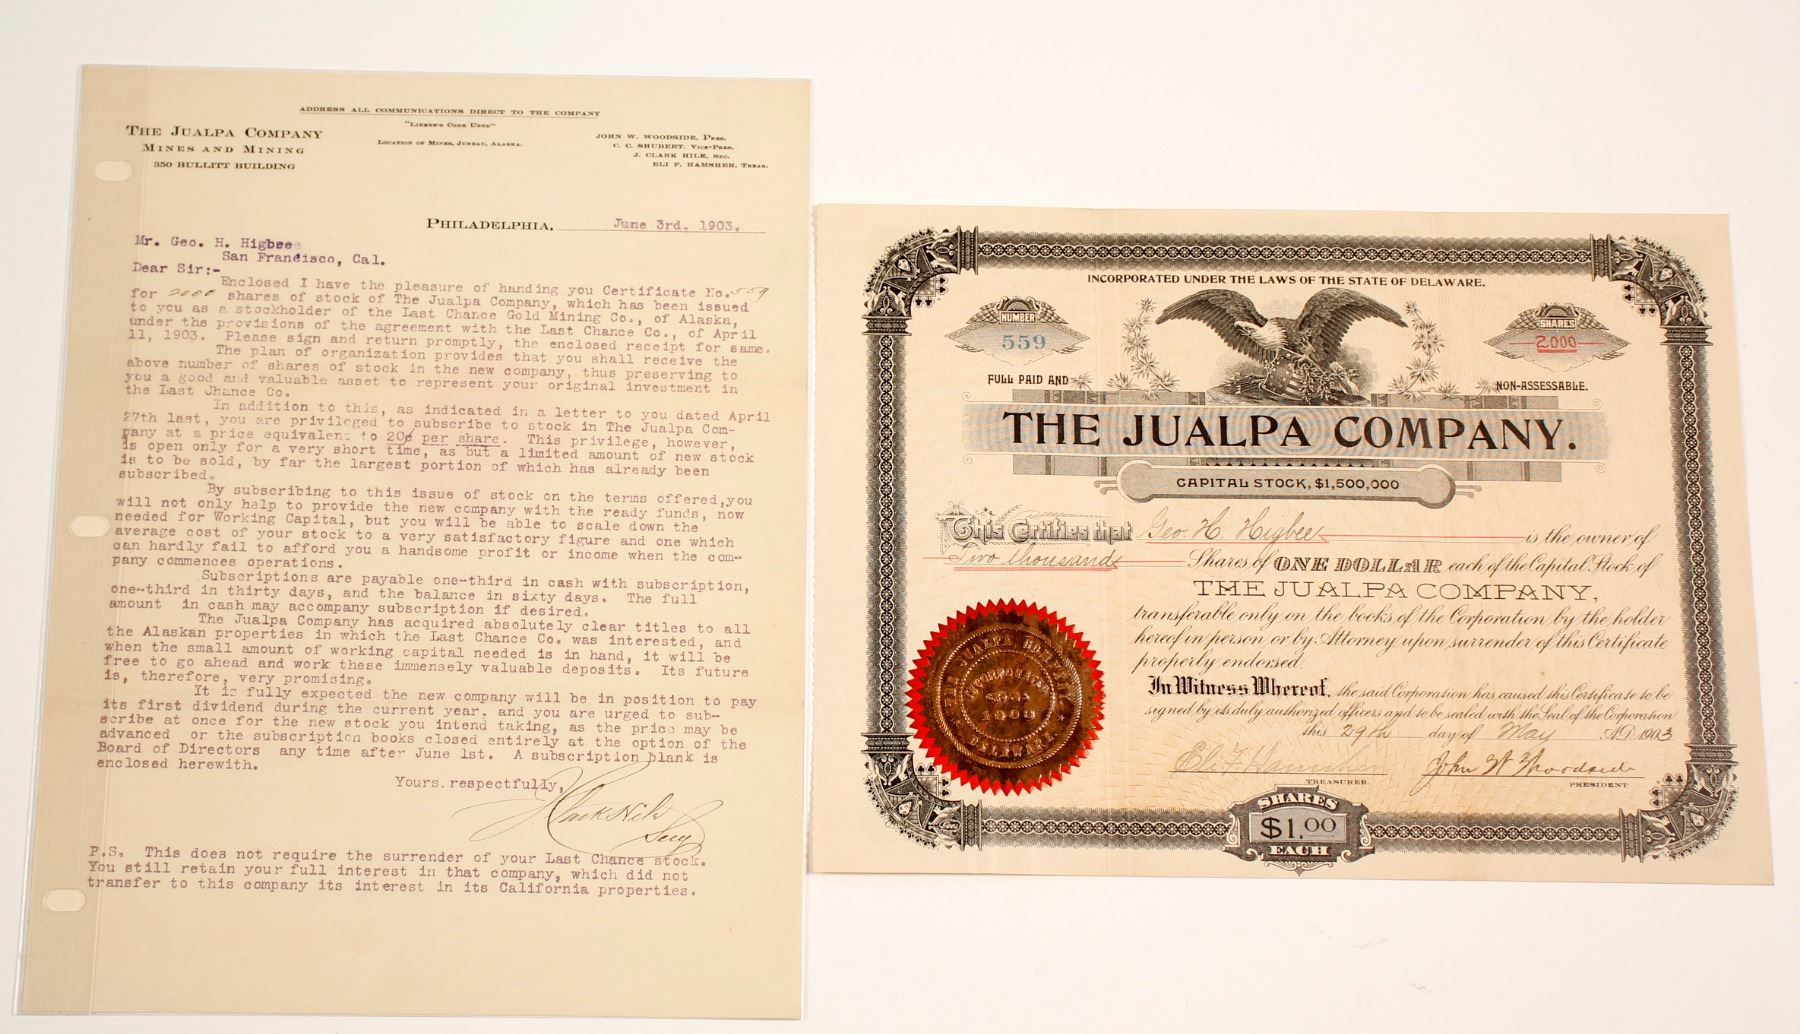 ADDRESS ALL COMMUNICATIONS DIRECT TO THE COMPANY
"LIEBER'S CODE USED"
LOCATION OF MINES, JUNEAU, ALASKA.
THE JUALPA COMPANY
MINES AND MINING
350 BULLITT BUILDING
JOHN W. WOODSIDE, PRES.
C. C. SHUBERT, VICE-PRES.
J. CLARK HILE, SEC.
ELI F. HAMSHER, TREAS.
PHILADELPHIA, June 3rd, 1903.
Mr. Geo. H. Higbee
San Francisco, Cal.
Dear Sir:-
Enclosed I have the pleasure of handing you Certificate No. 559
for 2000 shares of stock of The Jualpa Company, which has been issued
to you as a stockholder of the Last Chance Gold Mining Co., of Alaska,
under the provisions of the agreement with the Last Chance Co., of April
11, 1903. Please sign and return promptly, the enclosed receipt for same.
The plan of organization provides that you shall receive the
above number of shares of stock in the new company, thus preserving to
you a good and valuable asset to represent your original investment in
the Last Jhance Co.
In addition to this, as indicated in a letter to you dated April
27th last, you are privileged to subscribe to stock in The Jualpa Com-
pany at a price equivalent to 20¢ per share. This privilege, however,
is open only for a very short time, as but a limited amount of new stock
is to be sold, by far the largest portion of which has already been
subscribed.
By subscribing to this issue of stock on the terms offered,you
will not only help to provide the new company with the ready funds, now
needed for Working Capital, but you will be able to scale down the
average cost of your stock to a very satisfactory figure and one which
can hardly fail to afford you a handsome profit or income when the com-
pany commences operations.
Subscriptions are payable one-third in cash with subscription,
one-third in thirty days, and the balance in sixty days. The full
amount in cash may accompany subscription if desired.
The Jualpa Company has acquired absolutely clear titles to all
the Alaskan properties in which the Last Chance Co. was interested, and
when the small amount of working capital needed is in hand, it will be
free to go ahead and work these immensely valuable deposits. Its future
is, therefore, very promising.
It is fully expected the new company will be in position to pay
its first dividend during the current year, and you are urged to sub-
scribe at once for the new stock you intend taking, as the price may be
advanced or the subscription books closed entirely at the option of the
Board of Directors any time after June 1st. A subscription blank is
enclosed herewith.
Yours respectfully,
J Clark Hile
Secy
P.S. This does not require the surrender of your Last Chance stock.
You still retain your full interest in that company, which did not
transfer to this company its interest in its California properties.
INCORPORATED UNDER THE LAWS OF THE STATE OF DELAWARE.
NUMBER
559
SHARES
2000
FULL PAID AND
NON-ASSESSABLE.
THE JUALPA COMPANY.
CAPITAL STOCK, $1,500,000
This Certifies that Geo. H. Higbee is the owner of
Two thousand Shares of ONE DOLLAR each of the Capital Stock of
THE JUALPA COMPANY,
transferable only on the books of the Corporation by the holder
hereof in person or by Attorney upon surrender of this Certificate
properly endorsed.
In Witness Whereof, the said Corporation has caused this Certificate to be
signed by its duly authorized officers and to be sealed with the Seal of the Corporation
this 29th day of May A.D. 1903
Eli F. Hamsher
TREASURER.
John W Woodside
PRESIDENT
SHARES
$1.00
EACH